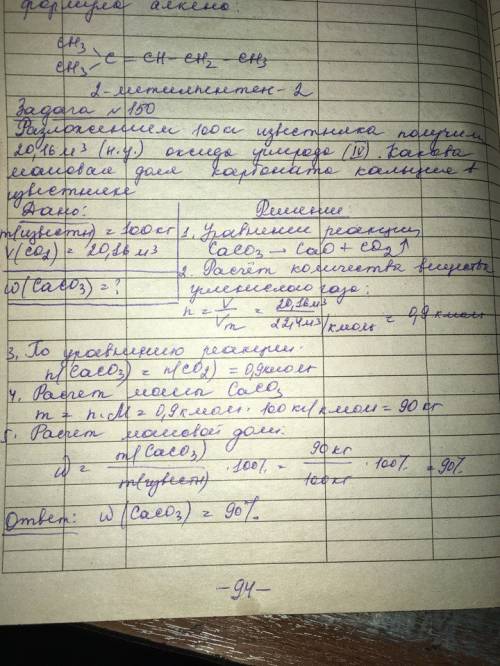 формула алкено.
CH3
CH3 C = CH - CH2 - CH3
2-метилпентен-2
Задача №150
Разложением 100кг известняка получили
20,16 м³ (н.у.) оксида углерода (IV). Какова
массовая доля карбоната кальция в
известняке
Дано:
m(известн) = 100 кг
V(CO2) = 20,16 м3
ω(CaCO3) = ?
Решение:
1. Уравнение реакции
CaCO3 → CaO + CO2↑
2. Расчёт количества вещества
углекислого газа:
n = V/Vm = 20,16м3/22,4м3/кмоль = 0,9 кмоль
3. По уравнению реакции:
n(CaCO3) = n(CO2) = 0,9кмоль
4. Расчет массы CaCO3
m = n·M = 0,9кмоль · 100 кг/кмоль = 90 кг
5. Расчет массовой доли:
ω = m(CaCO3)/m(известн) · 100% = 90 кг/100кг · 100% = 90%
Ответ: ω(CaCO3) = 90%.
-94-